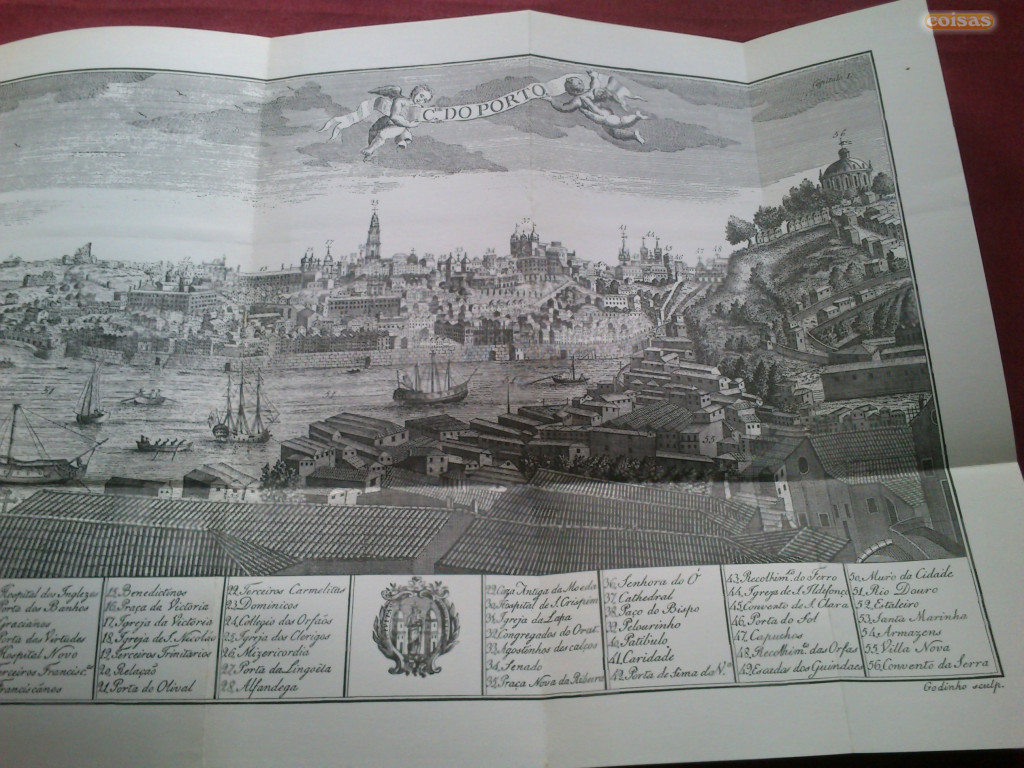 coisas
Capitulo I.
C.DE DO PORTO
Hospital dos Inglezes
Porta dos Banhos
Gracianos
Porta das Vertudes
Hospital Novo
Terceiros Francisc.os
Franciscanos
15. Benedictinos
16. Praça da Victoria
17. Igreja da Victoria
18. Igreja de S. Nicoláo
19. Terceiros Trinitarios
20. Relação
21. Porta do Olival
22. Terceiros Carmelitas
23. Dominicos
24. Collegio dos Orfaõs
25. Igreja dos Clerigos
26. Mizericordia
27. Porta da Lingoëta
28. Alfandega
29. Caza Antiga da Moeda
30. Hospital de S. Crispim
31. Igreja da Lapa
32. Congregados do Orat.
33. Agostinhos descalços
34. Senado
35. Praça Nova da Ribeira
36. Senhora do Ó
37. Cathedral
38. Paço do Bispo
39. Pelourinho
40. Patibulo
41. Caridade
42. Porta de Sima da N.a
43. Recolhim.to do Ferro
44. Igreja de S. Ildefonço
45. Convento de S. Clara
46. Porta do Sol
47. Capuchos
48. Recolhim.to das Orfas
49. Escadas dos Guindaes
50. Muro da Cidade
51. Rio Douro
52. Estaleiro
53. Santa Marinha
54. Armazens
55. Villa Nova
56. Convento da Serra
Godinho sculp.